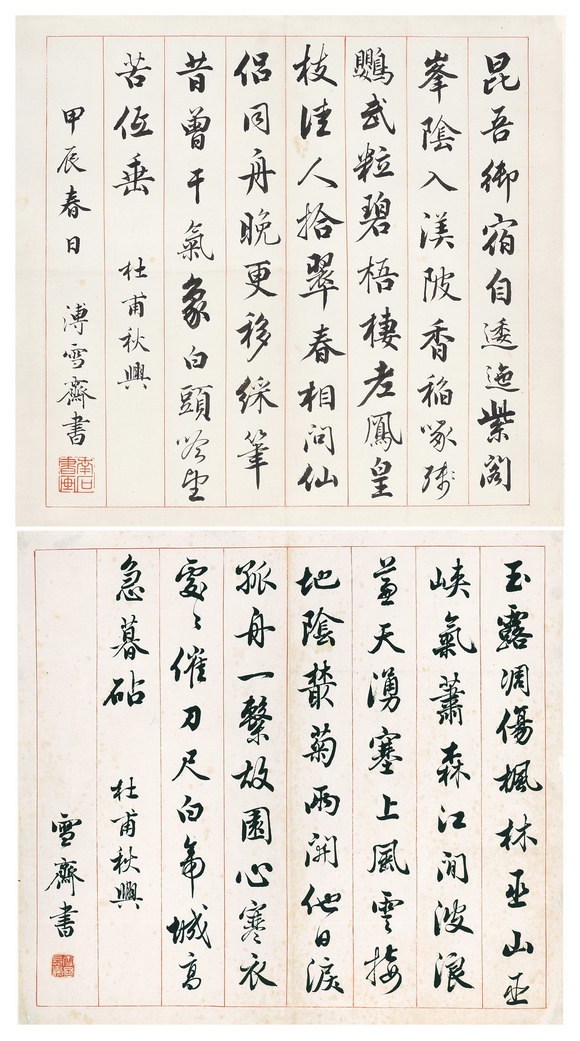 昆吾御宿自逶迤紫閣
峯陰入渼陂香稻啄殘
鸚武粒碧梧棲老鳳皇
枝佳人拾翠春相問仙
侶同舟晚更移綵筆
昔曾干氣象白頭吟望
苦低垂 杜甫秋興
甲辰春日 溥雪齋書
玉露凋傷楓林巫山巫
峽氣蕭森江間波浪
兼天湧塞上風雲接
地陰叢菊兩開他日淚
孤舟一繫故園心寒衣
處〻催刀尺白帝城高
急暮砧 杜甫秋興
雪齋書